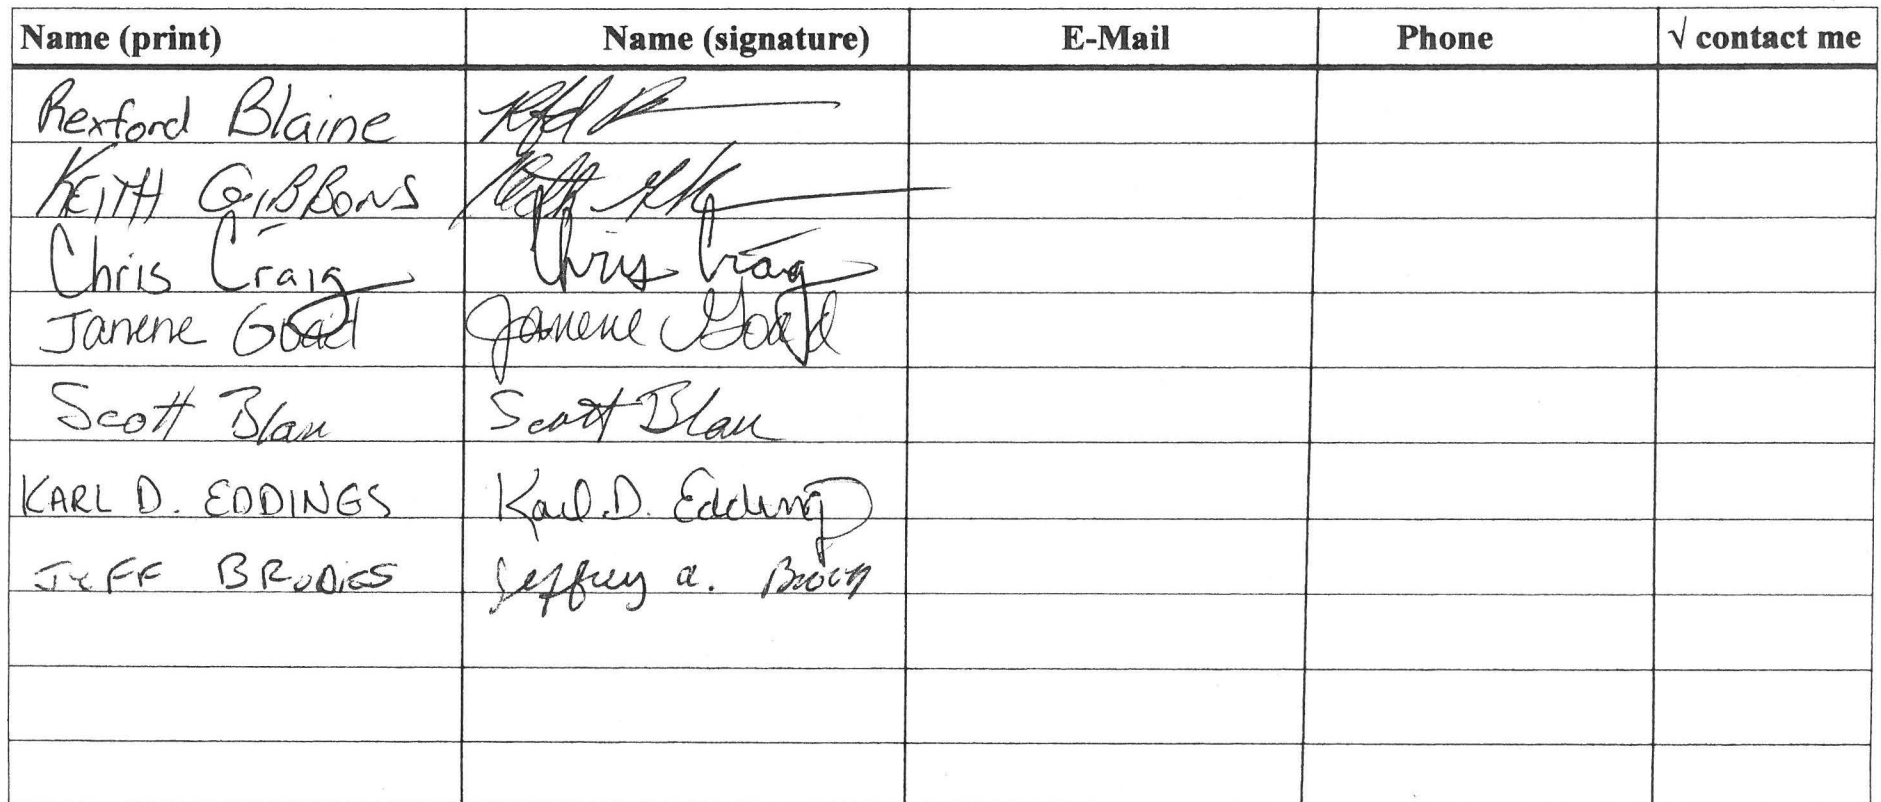 Name (print) Name (signature) E-Mail Phone √ contact me
Rexford Blaine
KEITH GIBBONS
Chris Craig Chris Craig
Janene Goad Janene Goad
Scott Blau Scott Blau
KARL D. EDDINGS Karl D. Eddings
JEFF Jeffrey a.